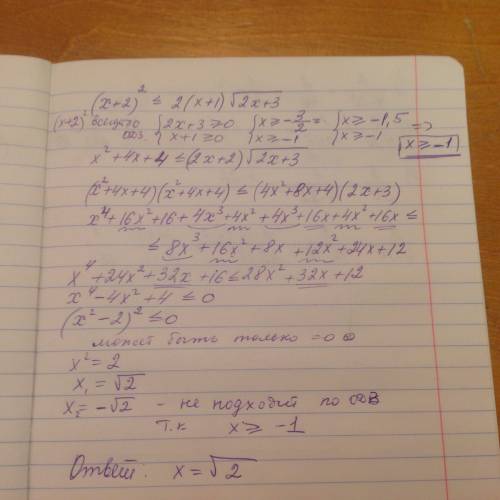 (x+2)² ≤ 2(x+1)√2x+3
(x+2)² всегда {2x+3≥0 {x≥-3/2 = {x≥-1,5 =>
{x+1≥0 {x≥-1 {x≥-1 x≥-1
x²+4x+4 ≤ (2x+2)√2x+3
(x²+4x+4)(x²+4x+4) ≤ (4x²+8x+4)(2x+3)
x⁴+16x²+16+4x³+4x²+4x³+16x+4x²+16x ≤
≤ 8x³+16x²+8x+12x²+24x+12
x⁴+24x²+32x+16≤28x²+32x+12
x⁴-4x²+4 ≤ 0
(x²-2)² ≤0
может быть только =0
x²=2
x₁=√2
x₂=-√2 - не подходит по
т.к x≥-1
Ответ: x=√2